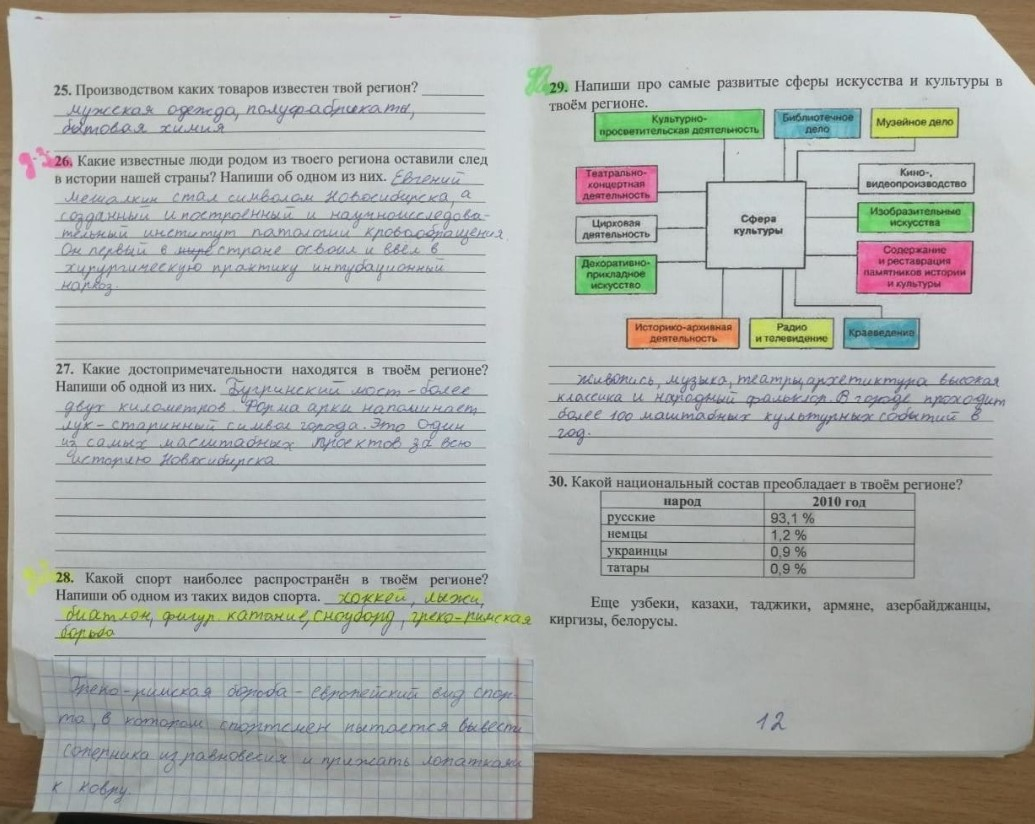 25. Производством каких товаров известен твой регион?
мужская одежда, полуфабрикаты,
бытовая химия
д-з
26. Какие известные люди родом из твоего региона оставили след
в истории нашей страны? Напиши об одном из них. Евгений
Мешалкин стал символом Новосибирска, а
созданный и построенный и научноисследова-
тельный институт патологии кровообращения.
Он первый в стране освоил и ввёл в
хирургическую практику интубационный
наркоз.
27. Какие достопримечательности находятся в твоём регионе?
Напиши об одной из них. Бугринский мост - более
двух километров. Форма арки напоминает
лук - старинный символ города. Это один
из самых масштабных проектов за всю
историю Новосибирска
28. Какой спорт наиболее распространён в твоём регионе?
Напиши об одном из таких видов спорта. хоккей, лыжи,
биатлон, фигур. катание, сноуборд, греко-римская
борьба
Греко-римская борьба - европейский вид спор-
та, в котором спортсмен пытается вывести
соперника из равновесия и прижать лопатками
к ковру.
29. Напиши про самые развитые сферы искусства и культуры в
твоём регионе.
Культурно-
просветительская деятельность
Библиотечное
дело
Музейное дело
Театрально-
концертная
деятельность
Кино-,
видеопроизводство
Цирковая
деятельность
Сфера
культуры
Изобразительные
искусства
Декоративно-
прикладное
искусство
Содержание
и реставрация
памятников истории
и культуры
Историко-архивная
деятельность
Радио
и телевидение
Краеведение
Живопись, музыка, театры, архетиктура высокая
классика и народный фальклор. В городе проходит
более 100 маштабных культурных событий в
год.
30. Какой национальный состав преобладает в твоём регионе?
народ 2010 год
русские 93,1 %
немцы 1,2 %
украинцы 0,9 %
татары 0,9 %
Еще узбеки, казахи, таджики, армяне, азербайджанцы,
киргизы, белорусы.
12